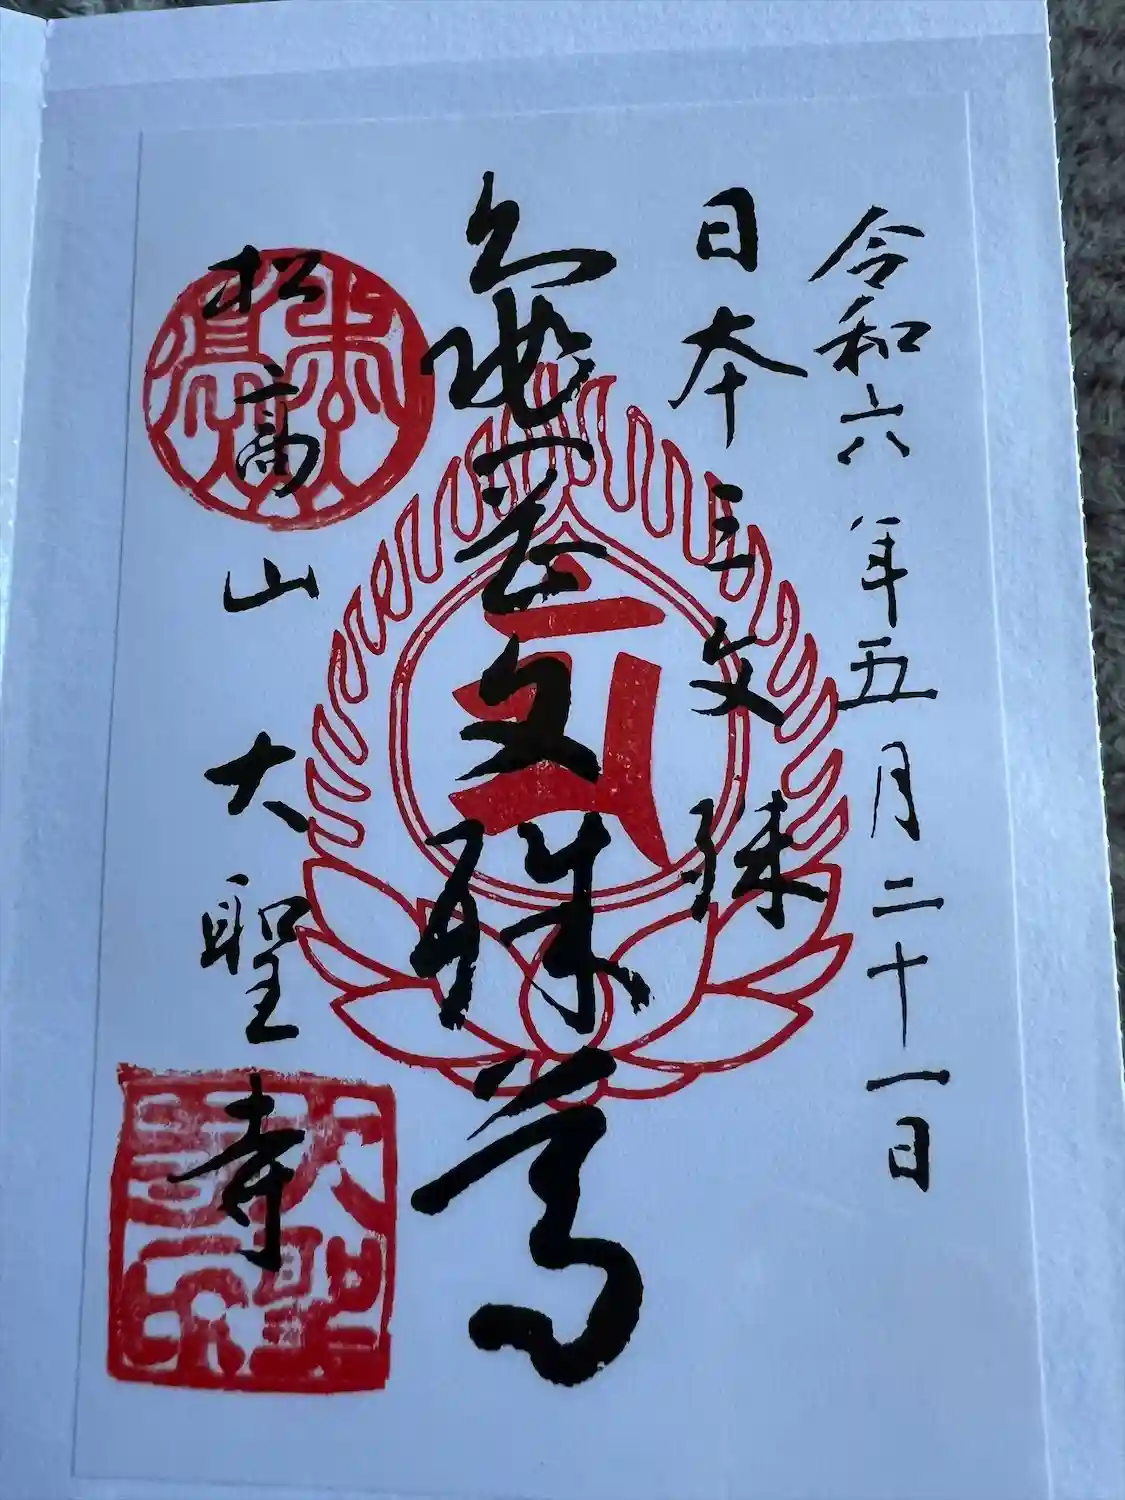 令和六年五月二十一日
日本三文殊
亀岡文殊尊
松高山 大聖寺
大聖寺印